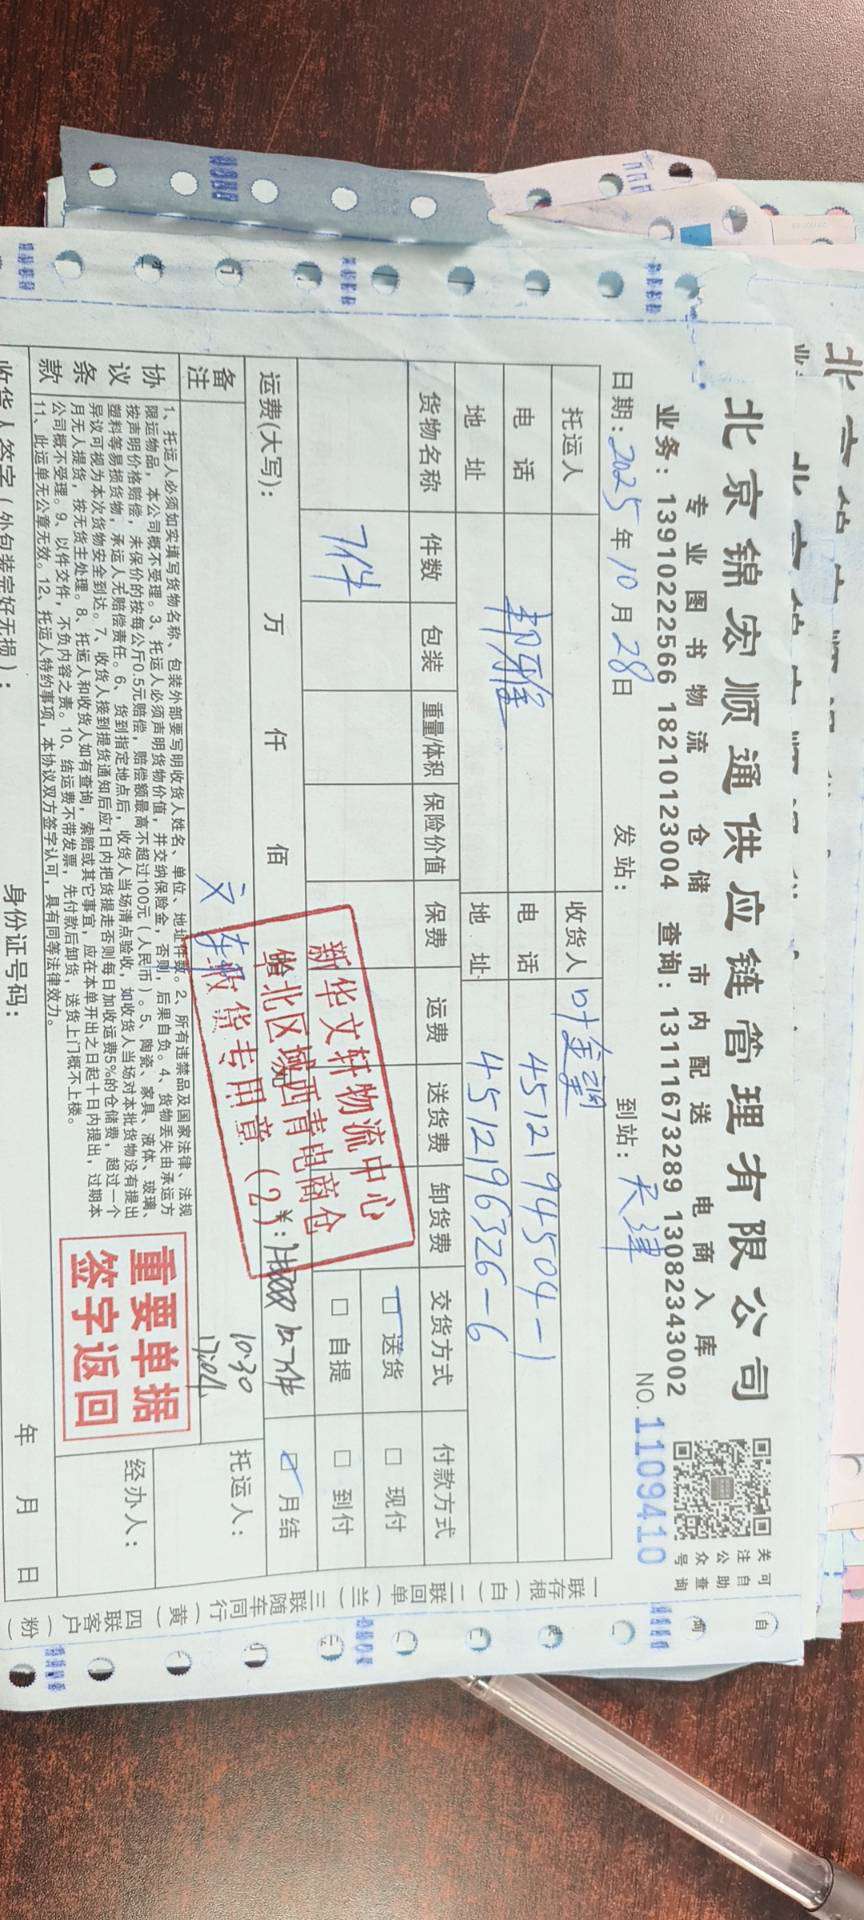 北京锦宏顺通供应链管理有限公司
专业图书物流 仓储 市内配送 电商入库
业务：13910222566 18210123004 查询：13111673289 13082343002
关注公众号
可自助查询
日期：2025年10月28日 发站： 到站：天津 NO.1109410
托运人 收货人
电话 郑雅 电话 4512194504-1
地址 地址 4512196326-6
货物名称 件数 包装 重量/体积 保险价值 保费 运费 送货费 卸货费 交货方式 付款方式
7件 送货 现付
自提 到付
运费(大写)： 万 仟 佰 ¥： 月结
新华文轩物流中心
华北区域西青电商仓
收货专用章（2）
备注 10:30 托运人：
协议条款
1、托运人必须如实填写货物名称、包装外部要写明收货人姓名、单位、地址件数。2、所有违禁品及国家法律、法规
限运物品，本公司概不受理。3、托运人必须声明货物价值，并交纳保险金，否则，后果自负。4、货物丢失由承运方
按声明价格赔偿，未保价的按每公斤0.5元赔偿，赔偿额最高不超过100元（人民币）。5、陶瓷、家具、液体、玻璃、
塑料等易损货物，承运人无赔偿责任。6、货到指定地点后，收货人当场清点验收，如收货人当场对本批货物没有提出
异议可视为本次货物安全到达。7、收货人接到提货通知后应1日内把货提走否则每日加收运费5%的仓储费，超过一个
月无人提货，按无货主处理。8、托运人和收货人如有查询，索赔或其它事宜，应在本单开出之日起十日内提出，过期本
公司概不受理。9、以件交件，不负内容之责。10、结运费不带发票，先付款后卸货，送货上门概不上楼。
11、此运单无公章无效。12、托运人特约事项，本协议双方签字认可，具有同等法律效力。
重要单据
签字返回
经办人：
收货人签字（外包装完好无损）： 身份证号码： 年 月 日
一联存根（白）二联回单（兰）三联随车同行（黄）四联客户（粉）